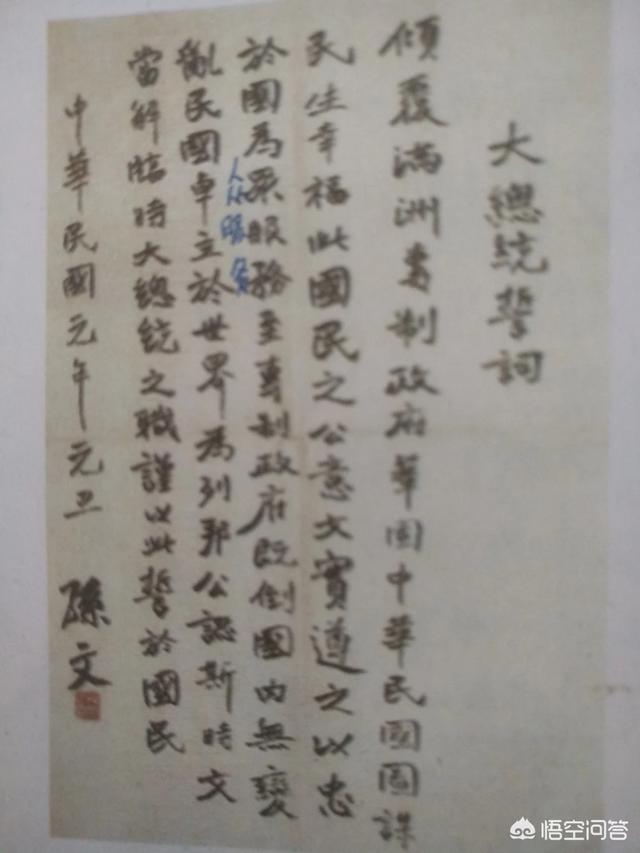 大總統誓詞
傾覆滿洲專制政府鞏固中華民國圖謀
民生幸福此國民之公意文實遵之以忠
於國為眾服務至專制政府既倒國內無變
众服务
亂民國卓立於世界為列邦公認斯時文
當解臨時大總統之職謹以此誓於國民
中華民國元年元旦 孫文
悟空问答